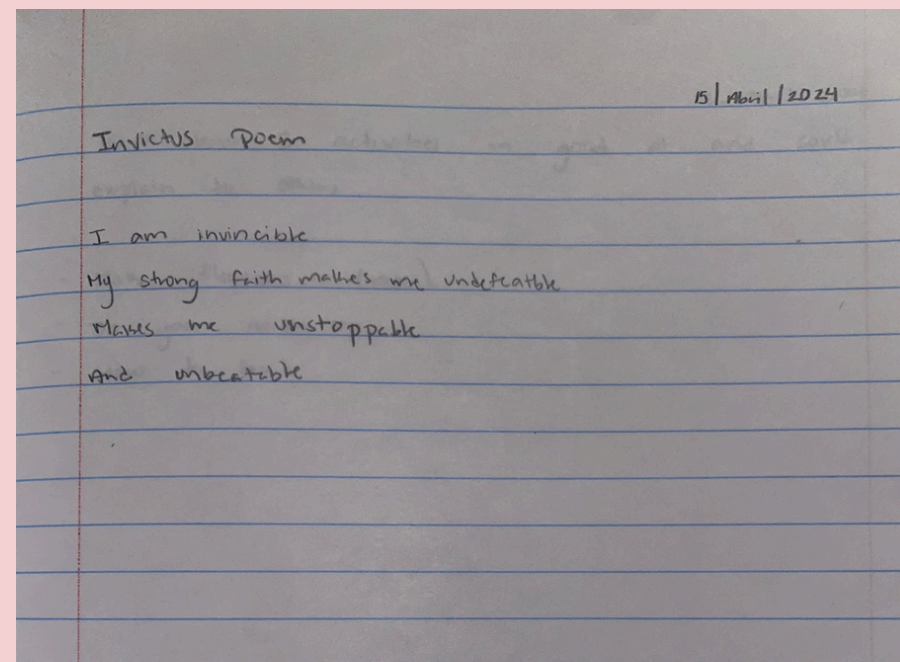 15/Abril/2024
Invictus Poem
I am invincible
My strong faith makes me undefeatble
Makes me unstoppable
And unbeatable